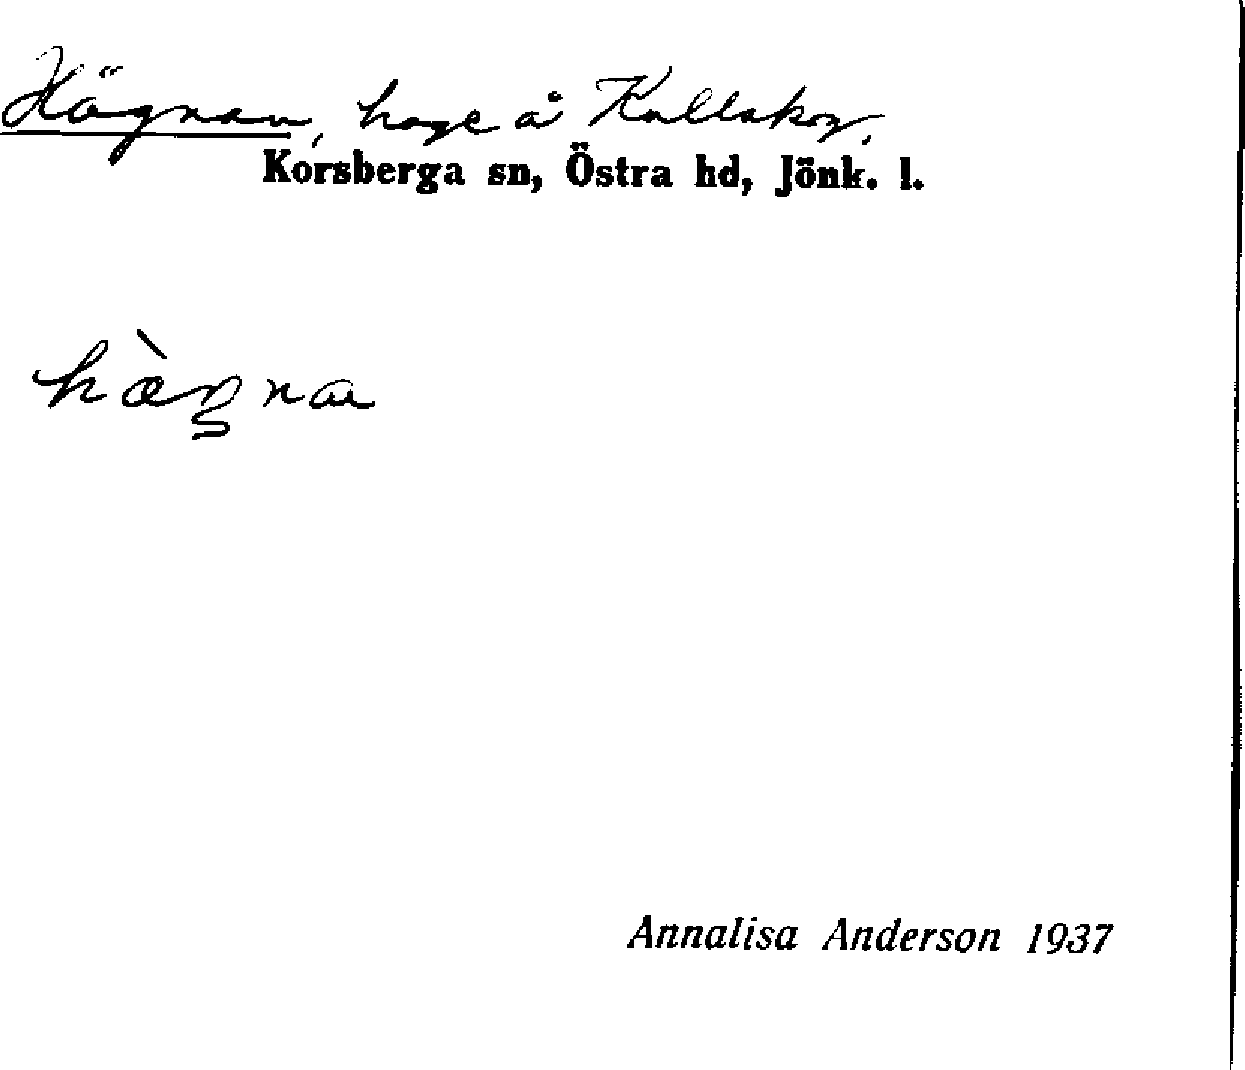 Hägnan, hage å Kallskog,
Korsberga sn, Östra hd, Jönk. l.
hæ̀ŋna
Annalisa Anderson 1937